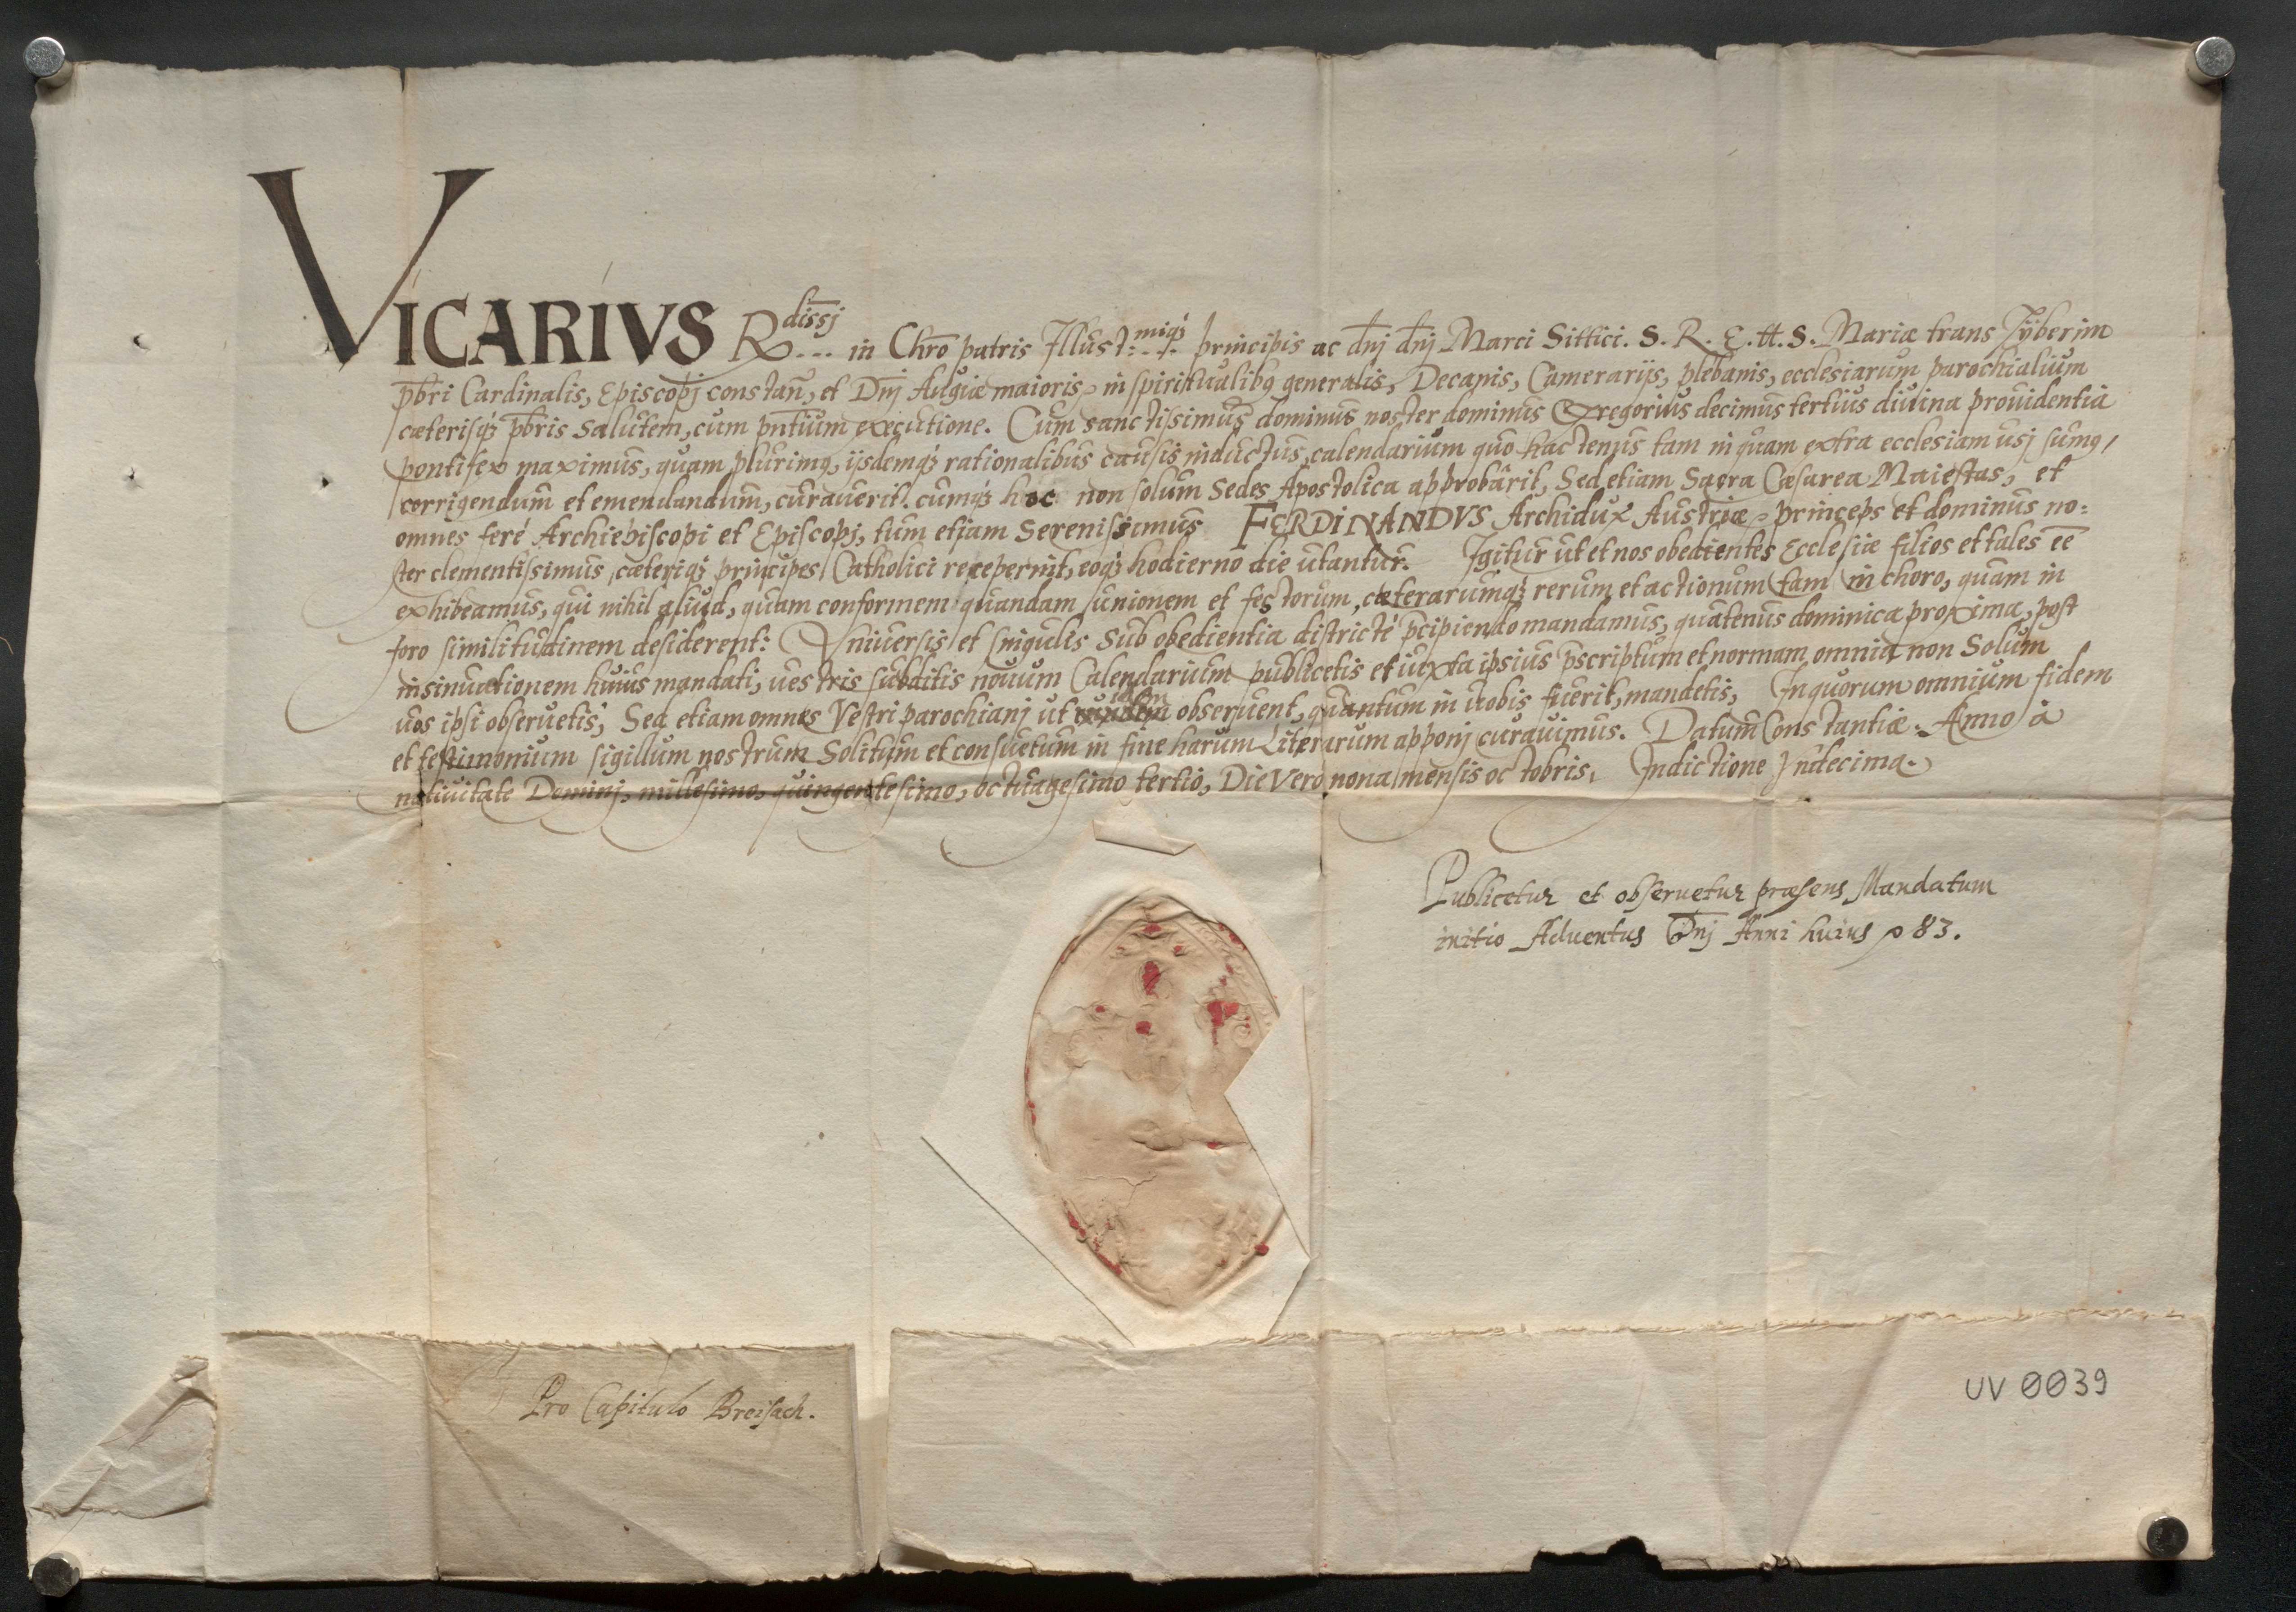 VICARIVS R dissj in Chro patris Illust: miqꝫ principis ac dnj dnj Marci Sittici. S. R. E. tt. S. Mariæ trans Tÿberim
pbri Cardinalis, Episcopj constan, et Dnj Augiæ maioris, in spiritualibꝰ generalis, Decanis, Camerarijs, plebanis, ecclesiarum parochialium
cæterisqꝫ pbris salutem, cum pntium executione. Cum sanctissimus dominus noster dominus Gregorius decimus tertius diuina prouidentia
pontifex maximus, quam plurimꝰ, ijsdemqꝫ rationalibus causis inductus, calendarium quo hactenus tam in quam extra ecclesiam usj sumꝰ,
corrigendum et emendandum, curauerit. cumqꝫ hoc non solum Sedes Apostolica approbârit, Sed etiam Sacra Cæsarea Maiestas, et
omnes feré Archiepiscopi et Episcopj, tum etiam Serenissimus FERDINANDVS Archidux Austriæ, princeps et dominus no:
ster clementissimus, cæteriqꝫ principes Catholici receperint, eoqꝫ hodierno die utantur. Igitur ut et nos obedientes Ecclesiæ filios et tales ee
exhibeamus, qui nihil aliud, quam conformem quandam unionem et festorum, cæterarumqꝫ rerum et actionum tam in choro, quam in
foro similitudinem desiderent: Vniuersis et singulis Sub obedientia districté pcipiendo mandamus, quatenus dominica proxima, post
insinuationem huius mandati, uestris subditis nouum Calendarium publicetis et iuxta ipsius pscriptum et normam omnia non Solum
uos ipsi obseruetis, Sed etiam omnes Vestri parochianj ut idem obseruent, quantum in uobis fuerit, mandetis, In quorum omnium fidem
et testimonium sigillum nostrum Solitum et consuetum in fine harum Literarum apponj curauimus. Datum Constantiæ. Anno â
natiuitate Dominj, millesimo, quingentesimo, octuagesimo tertio, Die Vero nona mensis octobris, Indictione Vndecima.
Publicetur et obseruetur præsens Mandatum
initio Aduentus Dnj Anni huius p 83.
Pro Capitulo Breisach.
UV 0039